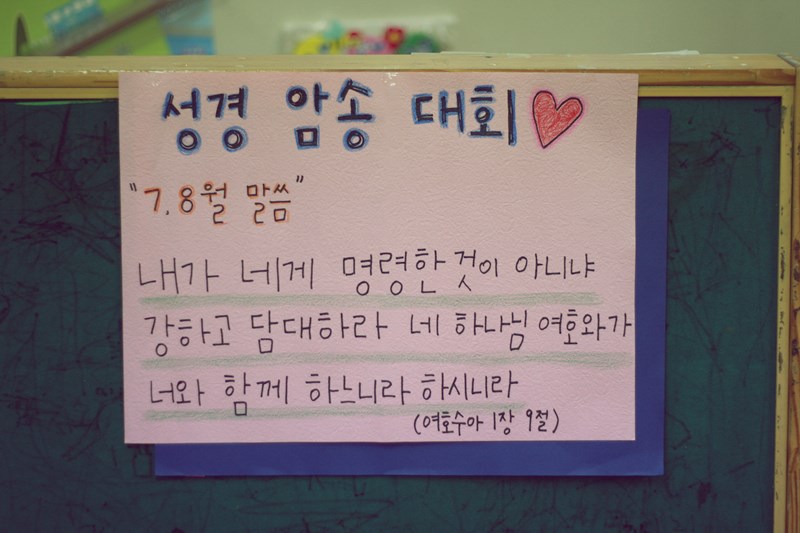 성경 암송 대회
"7. 8월 말씀"
내가 네게 명령한 것이 아니냐
강하고 담대하라 네 하나님 여호와가
너와 함께 하느니라 하시니라
(여호수아 1장 9절)